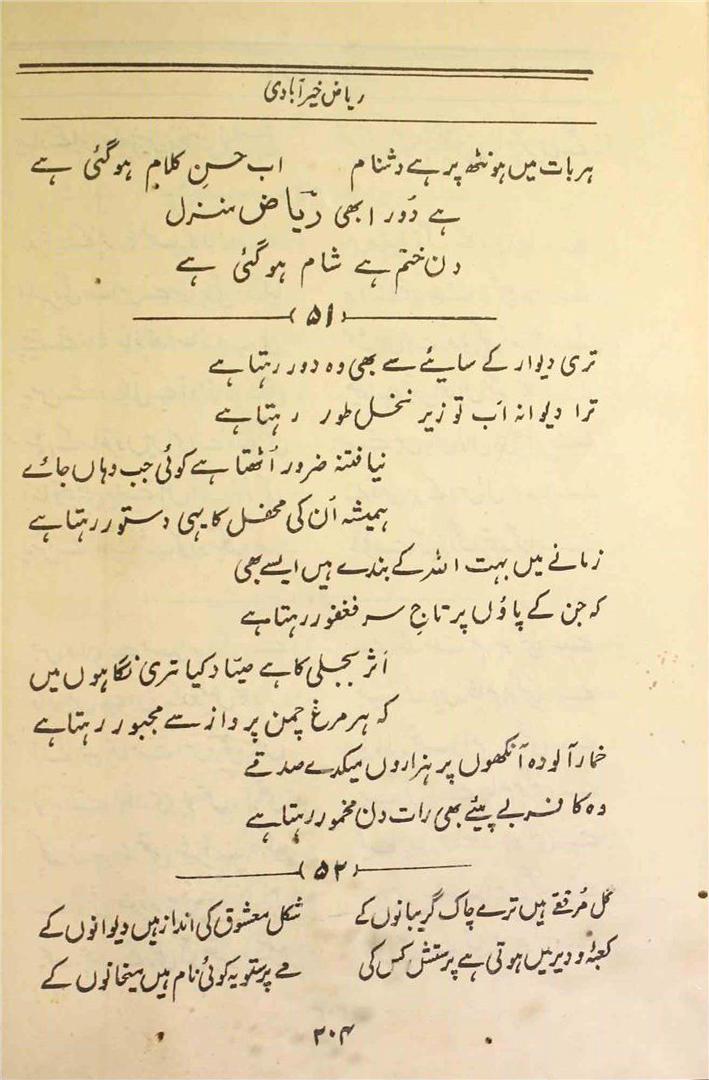 ریاض خیرآبادی
ہر بات میں ہونٹھ پر ہے دشنام اب حسنِ کلام ہوگئی ہے
ہے دُور ابھی ریاضؔ منزل
دن ختم ہے شام ہوگئی ہے
(۵۱)
تری دیوار کے سایئے سے بھی وہ دور رہتا ہے
ترا دیوانہ اَب تو زیر نخل طور رہتا ہے
نیا فتنہ ضرور اُٹھتا ہے کوئی جب وہاں جائے
ہمیشہ اُن کی محفل کا یہی دستور رہتا ہے
زمانے میں بہت اللہ کے بندے ہیں ایسے بھی
کہ جن کے پاؤں پر تاجِ سر فغفور رہتا ہے
اَثر بجلی کا ہے صیّاد کیا تری نگاہوں میں
کہ ہر مرغِ چمن پرواز سے مجبور رہتا ہے
خمار آلودہ آنکھوں پر ہزاروں میکدے صدقے
وہ کافر بے پیئے بھی رات دن مخمور رہتا ہے
(۵۲)
گل مُرقعے ہیں ترے چاک گریبانوں کے شکل معشوق کی انداز ہیں دیوانوں کے
کعبۂ و دیر میں ہوتی ہے پرستش کس کی مے پرستو یہ کوئی نام ہیں میخانوں کے
۲۰۴